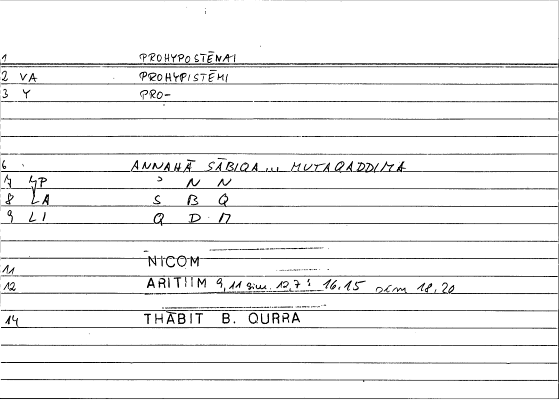 1 PROHYPOSTĒNAI
2 VA PROHYPISTĒMI
3 Y PRO-
6 ANNAHĀ SĀBIQA ... MUTAQADDIMA
7 YP ʾ N N
8 LA S B Q
9 LI Q D M
11 NICOM
12 ARITIIM 9,11 sim. 12,7 : 16.15 sim 18,20
14 THĀBIT B. QURRA